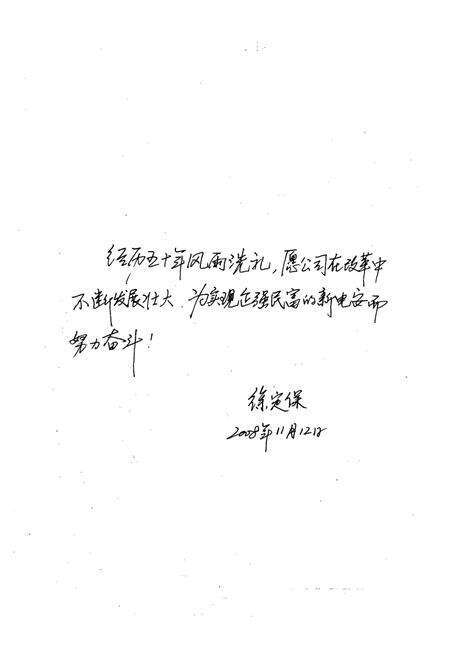 经历五十年风雨洗礼，愿公司在改革中
不断发展壮大、为实现企强民富的新电安而
努力奋斗！
徐定保
2008年11月12日